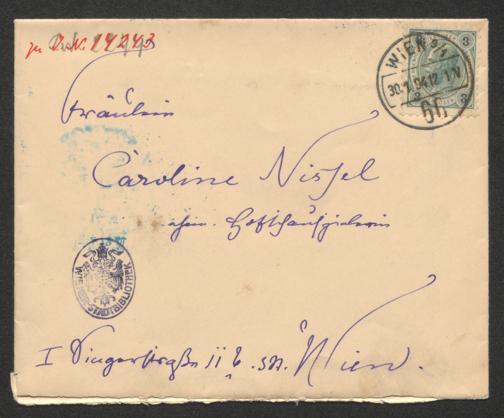 zu I.N. 19243
WIEN 9/1
30.1.94.12-1N
3 3
Fräulein
Caroline Nissel
Hofschauspielerin
WIENER STADTBIBLIOTHEK
I Singerstraße 11 b. Wien.